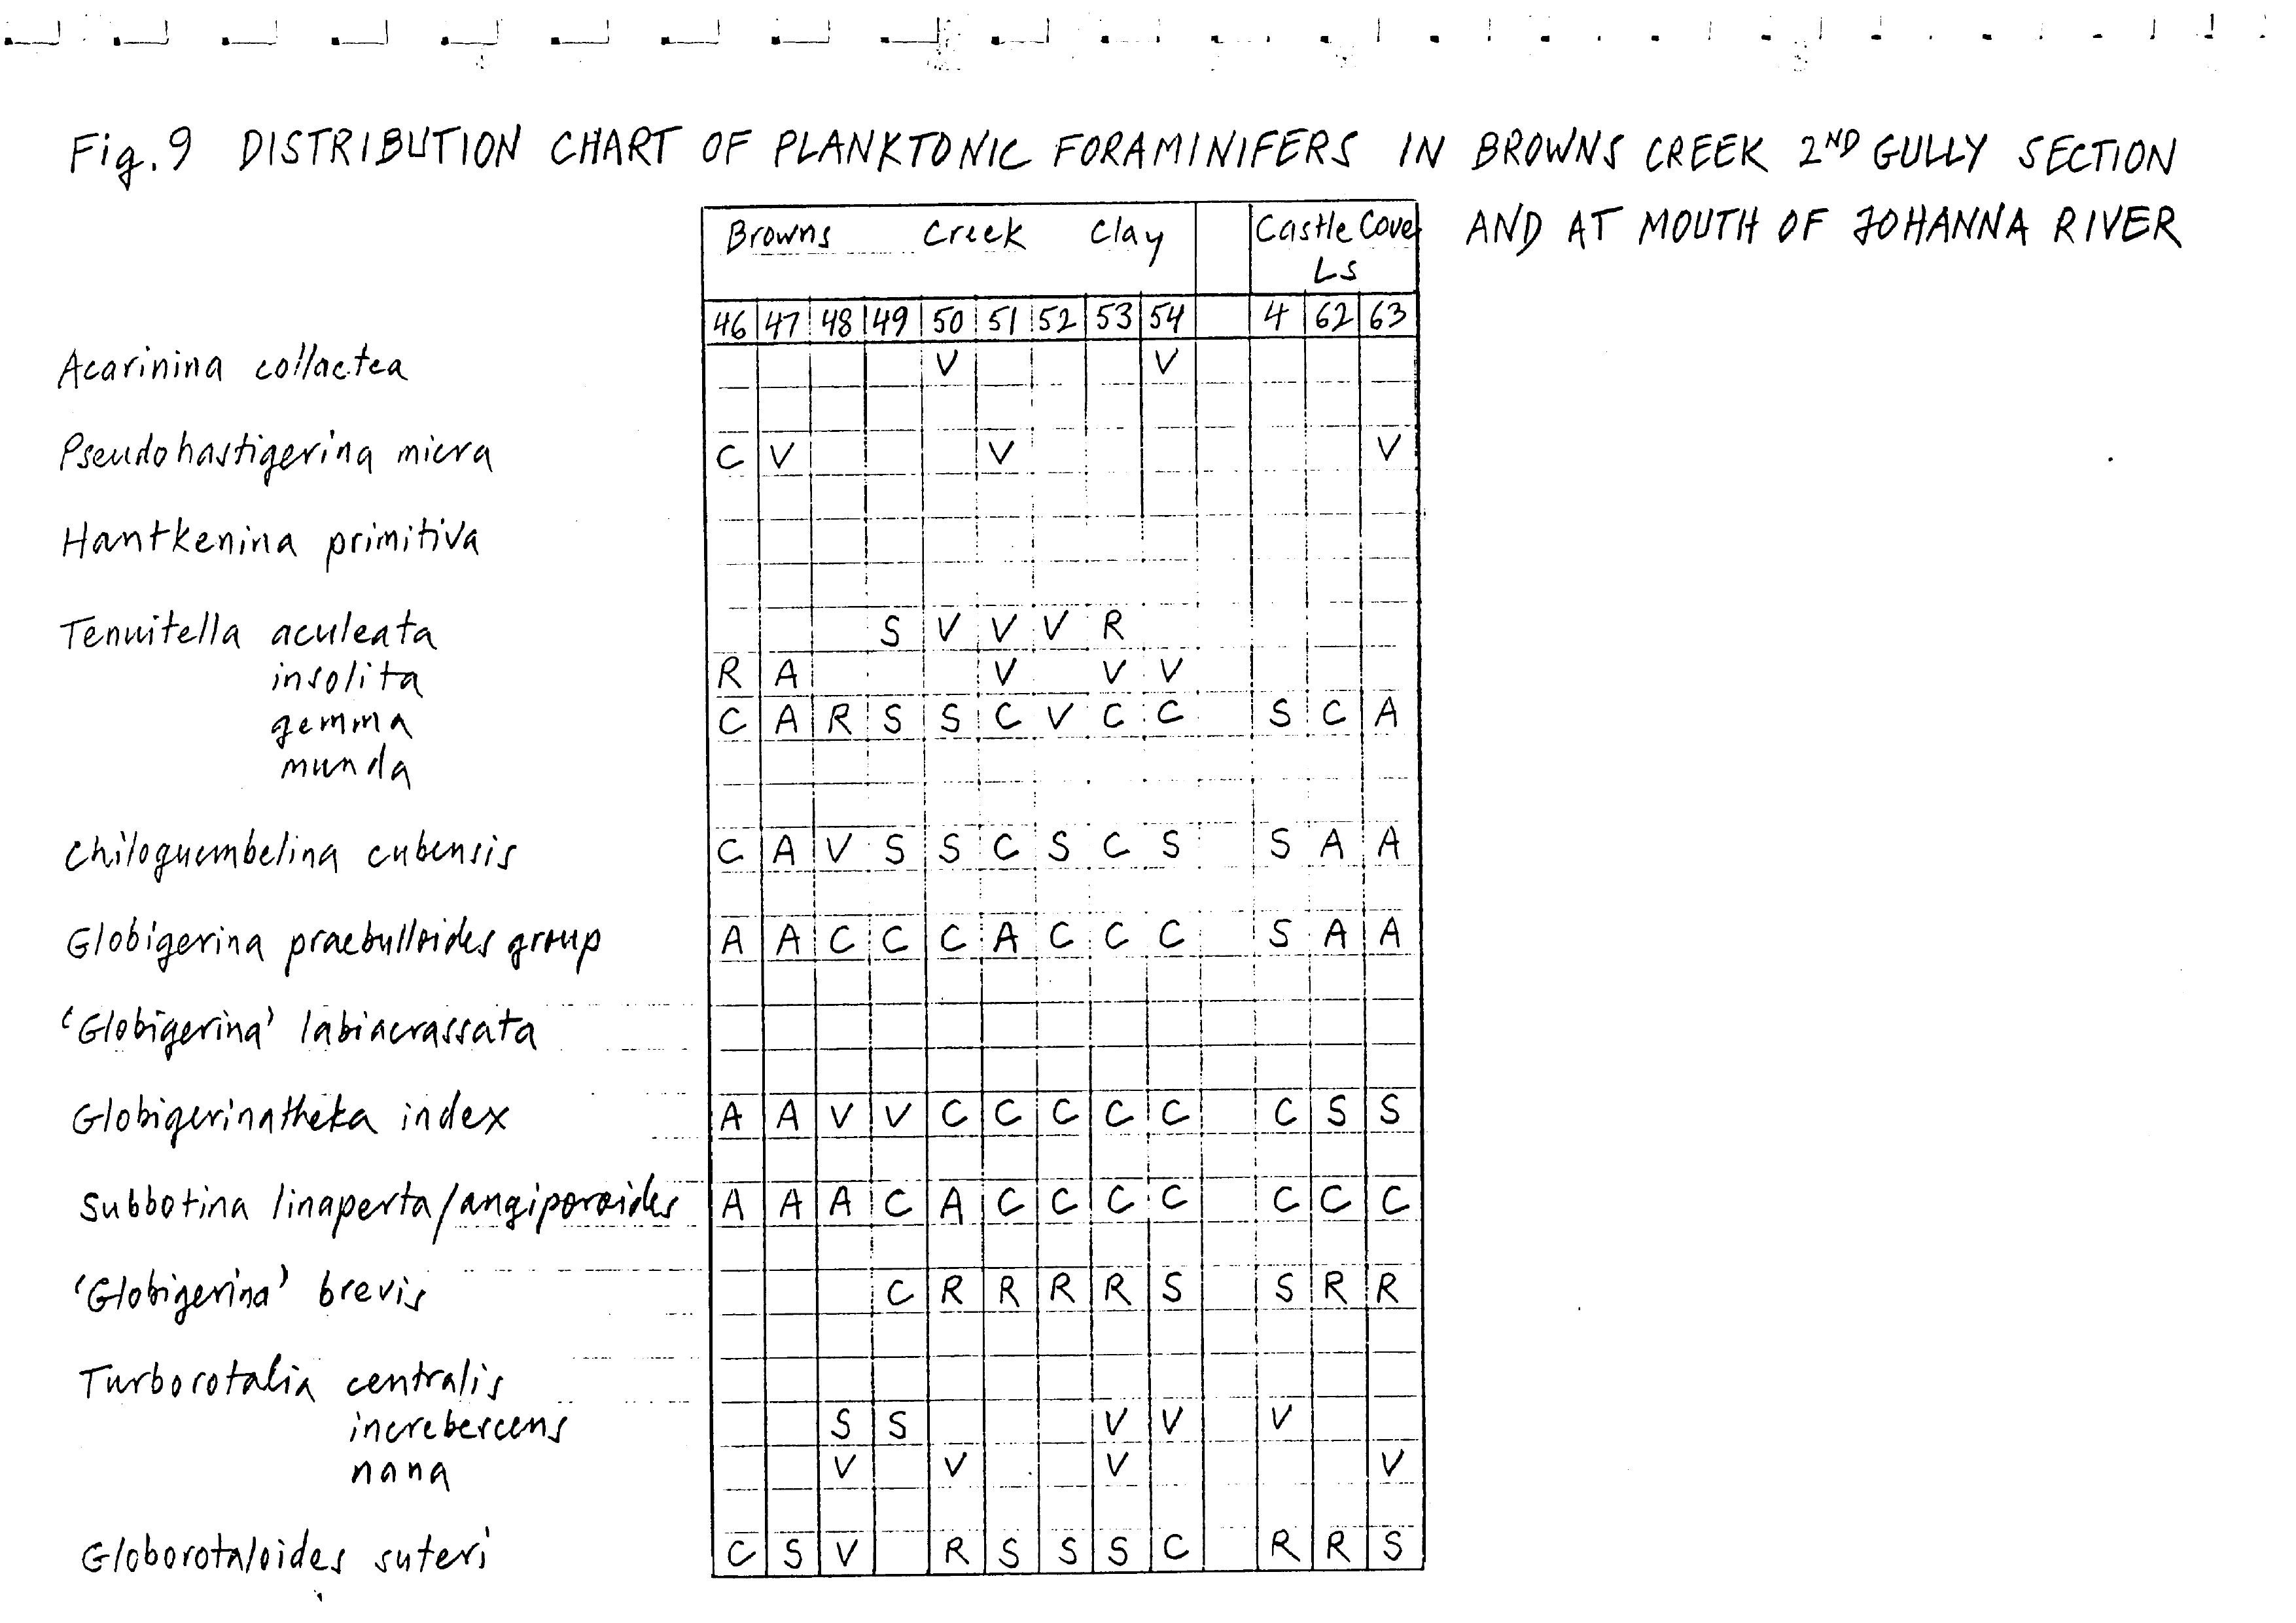 Fig. 9 DISTRIBUTION CHART OF PLANKTONIC FORAMINIFERS IN BROWNS CREEK 2ND GULLY SECTION
AND AT MOUTH OF JOHANNA RIVER
Browns Creek Clay Castle Cove
Ls
46 47 48 49 50 51 52 53 54 4 62 63
Acarinina collactea V V
Pseudohastigerina micra C V V V
Hantkenina primitiva
Tenuitella aculeata S V V V R
insolita R A V V V
gemma C A R S S C V C C S C A
munda
Chiloguembelina cubensis C A V S S C S C S S A A
Globigerina praebulloides group A A C C C A C C C S A A
'Globigerina' labiacrassata
Globigerinatheka index A A V V C C C C C C S S
Subbotina linaperta/angiporoides A A A C A C C C C C C C
'Globigerina' brevis C R R R R S S R R
Turborotalia centralis
increbescens S S V V V
nana V V V V
Globorotaloides suteri C S V R S S S C R R S